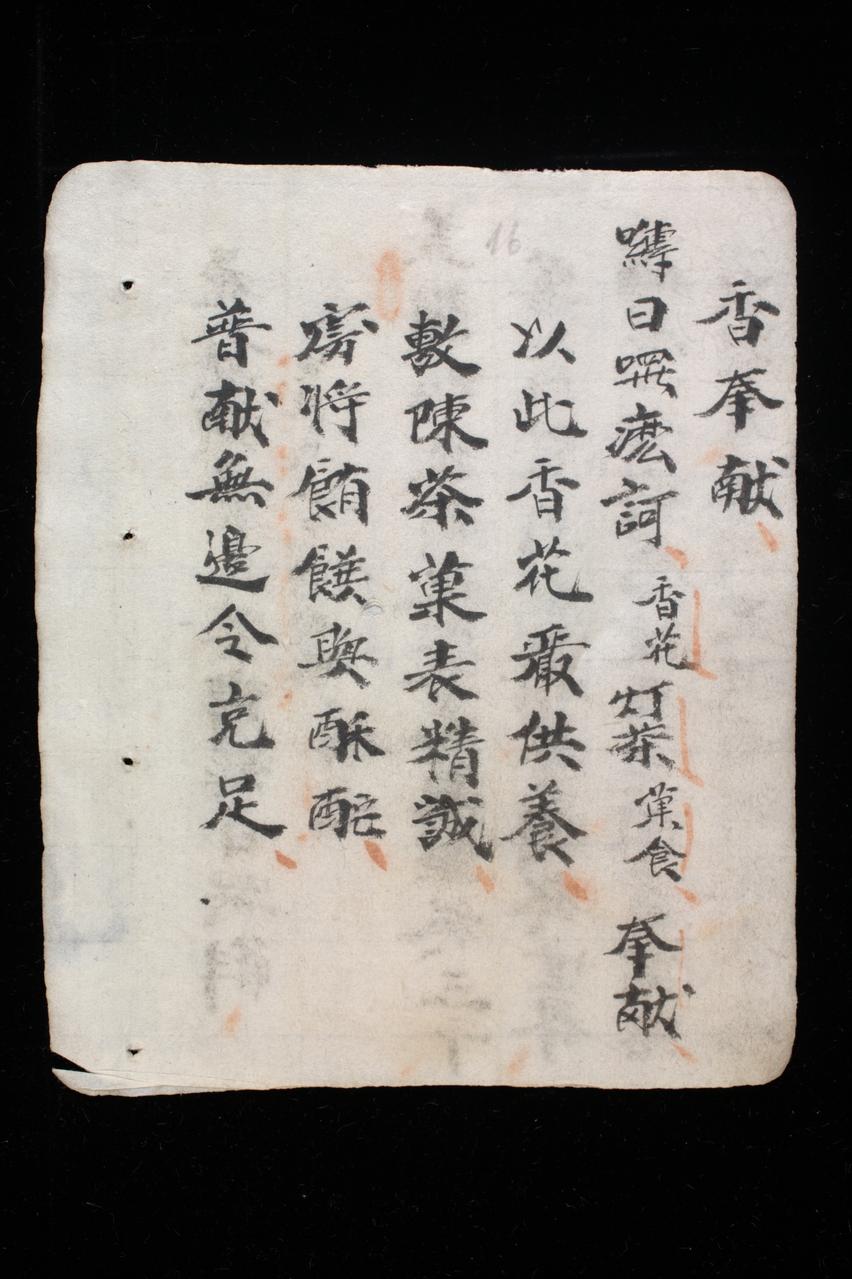 16
香奉献
嚩日囉麼訶 香花灯茶菓食 奉献
以此香花嚴供養
敷陳茶菓表精誠
将餚饌與酥酡
普献無邊令充足